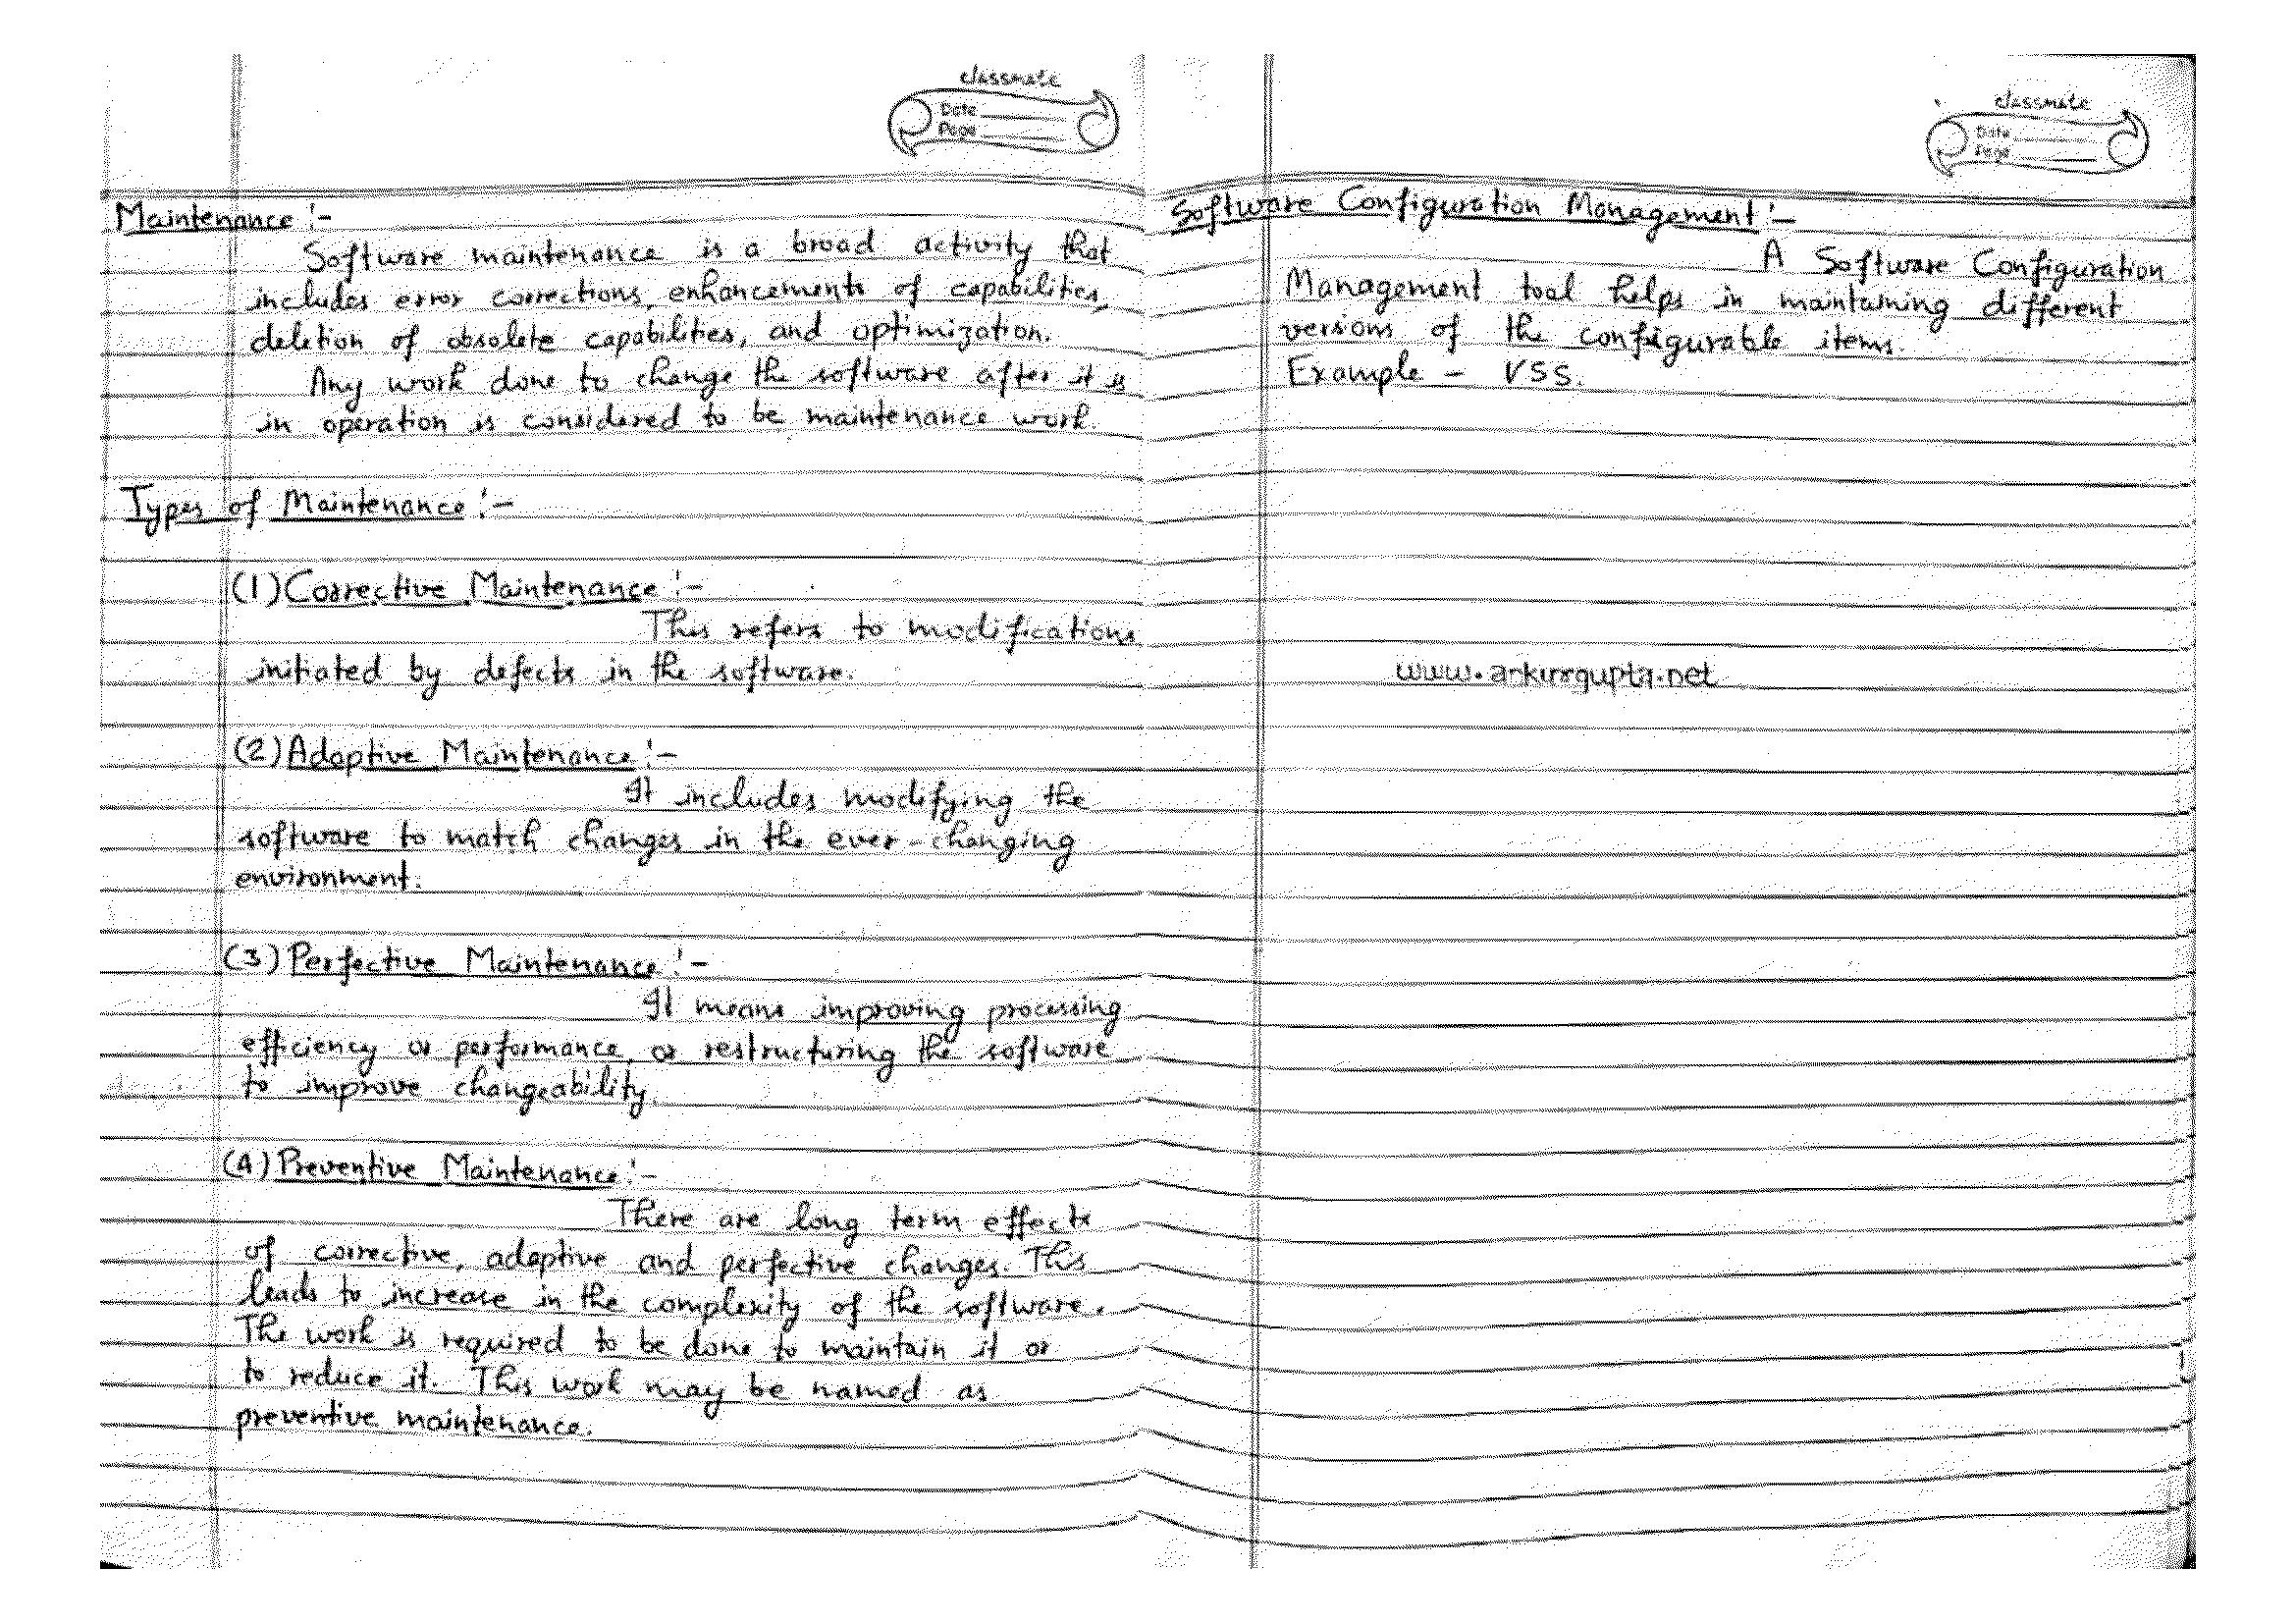 classmate
Date
Page
Maintenance :-
Software maintenance is a broad activity that
includes error corrections, enhancements of capabilities,
deletion of obsolete capabilities, and optimization.
Any work done to change the software after it is
in operation is considered to be maintenance work.
Types of Maintenance :-
(1) Corrective Maintenance :-
This refers to modifications
initiated by defects in the software.
(2) Adaptive Maintenance :-
It includes modifying the
software to match changes in the ever-changing
environment.
(3) Perfective Maintenance :-
It means improving processing
efficiency or performance, or restructuring the software
to improve changeability.
(4) Preventive Maintenance :-
There are long term effects
of corrective, adaptive and perfective changes. This
leads to increase in the complexity of the software.
The work is required to be done to maintain it or
to reduce it. This work may be named as
preventive maintenance.
classmate
Date
Page
Software Configuration Management :-
A Software Configuration
Management tool helps in maintaining different
versions of the configurable items.
Example - VSS.
www.ankurgupta.net